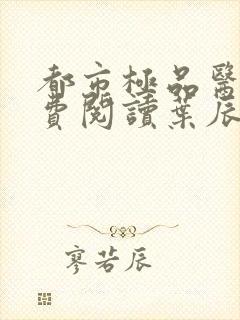 都市極品醫
費閱讀葉辰
寥若辰